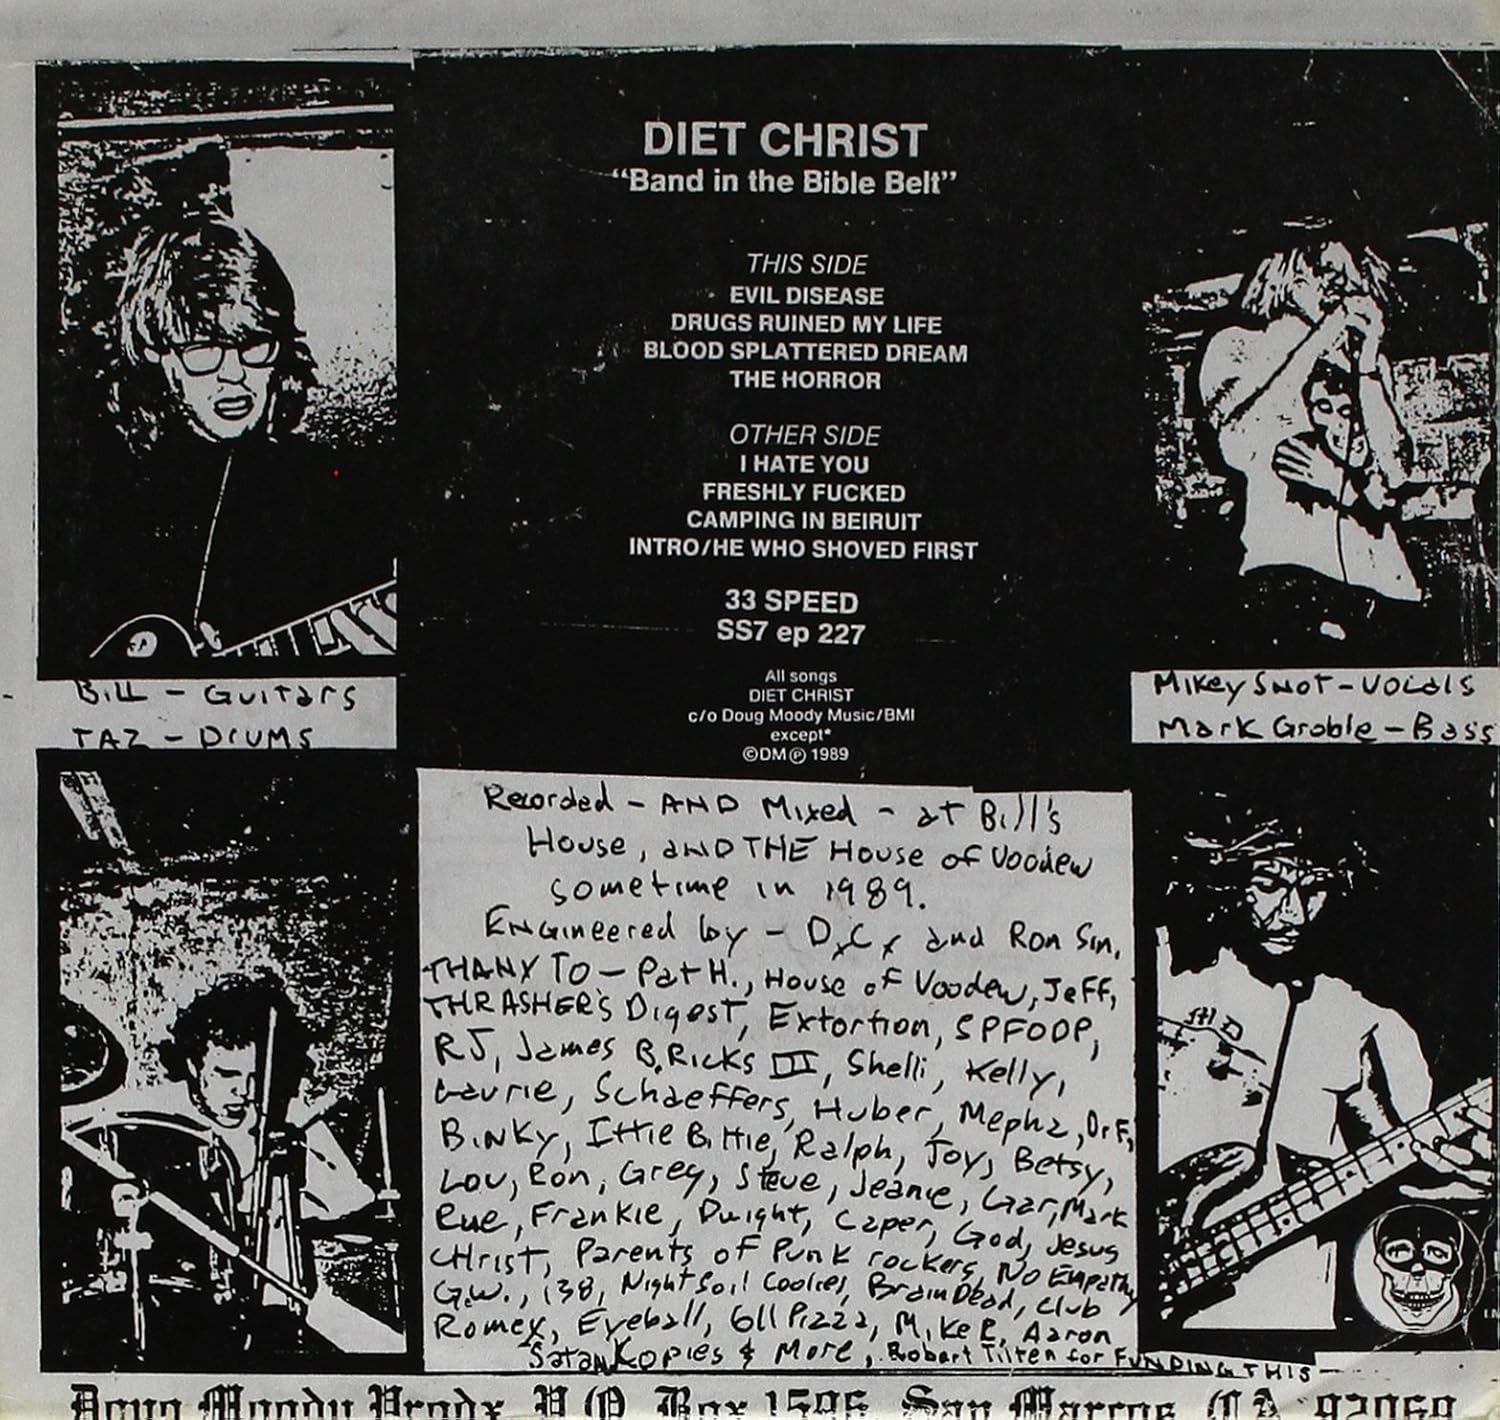 DIET CHRIST
“Band in the Bible Belt”
THIS SIDE
EVIL DISEASE
DRUGS RUINED MY LIFE
BLOOD SPLATTERED DREAM
THE HORROR
OTHER SIDE
I HATE YOU
FRESHLY FUCKED
CAMPING IN BEIRUIT
INTRO/HE WHO SHOVED FIRST
33 SPEED
SS7 ep 227
All songs
DIET CHRIST
c/o Doug Moody Music/BMI
except*
©DM℗ 1989
BILL - GUITARS
TAZ - DRUMS
MIKEY SNOT - VOCALS
MARK Groble - Bass
Recorded - AND Mixed - at Bill's
House, AND THE House of Voodew
sometime in 1989.
Engineered by - DxCx and Ron Sin.
THANX TO - Pat H., House of Voodew, Jeff,
THRASHER'S Digest, Extortion, SPFOOP,
RJ, James B. Ricks III, Shelli, Kelly,
Laurie, Schaeffers, Huber, Mepha, Dr F,
Binky, Ittie Bittie, Ralph, Joy, Betsy,
Lou, Ron, Greg, Steve, Jeanie, Gar, Mark
Rue, Frankie, Dwight, Caper, God, Jesus
CHrist, Parents of Punk rockers, No Empathy
G.W., 138, NightSoil Coolies, BrainDead, Club
Romex, Eyeball, Gll Pizza, Mike R, Aaron
Satan Kopies & More, Robert Tilten for FUNDING THIS
Doug Moody Prodx. P.O. Box 1596, San Marcos, CA. 92069